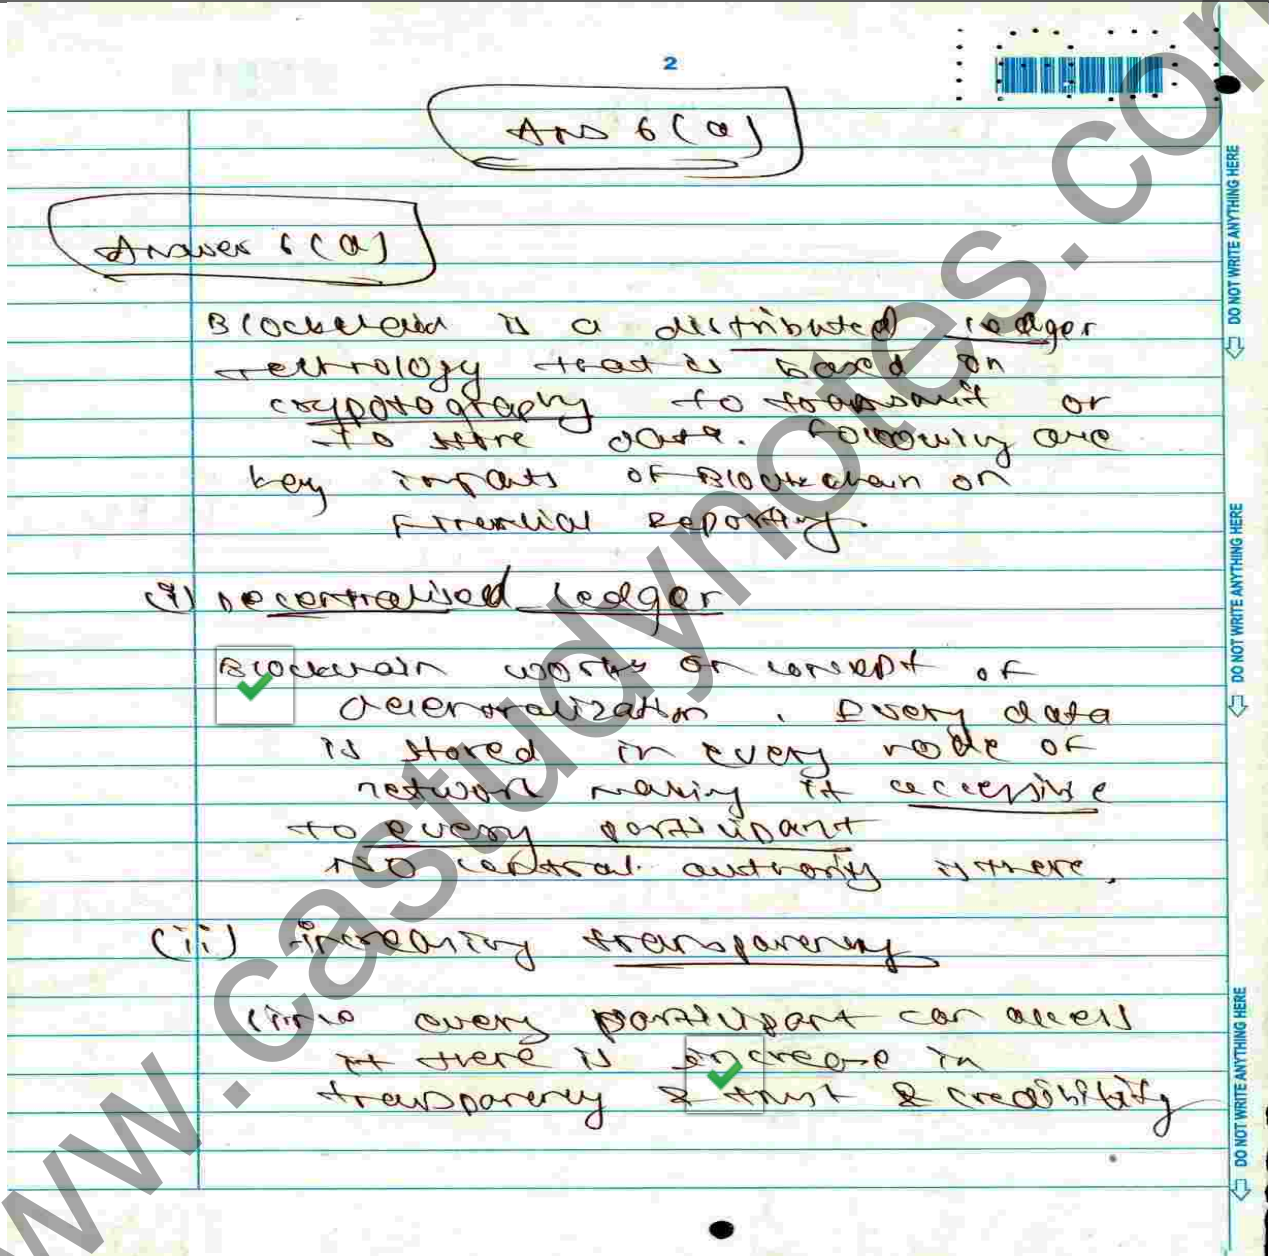 2
Ans 6 (a)
Answer 6 (a)
Blockchain is a distributed ledger
technology that is based on
cryptography to transmit or
to store data. Following are
key impacts of Blockchain on
Financial Reporting.
(i) Decentralised Ledger
Blockchain works on concept of
decentralization. Every data
is stored in every node of
network making it accessible
to every participant
No central authority is there.
(ii) Increasing transparency
Since every participant can access
it there is increase in
transparency & trust & credibility
DO NOT WRITE ANYTHING HERE
DO NOT WRITE ANYTHING HERE
DO NOT WRITE ANYTHING HERE
www.castudynotes.com